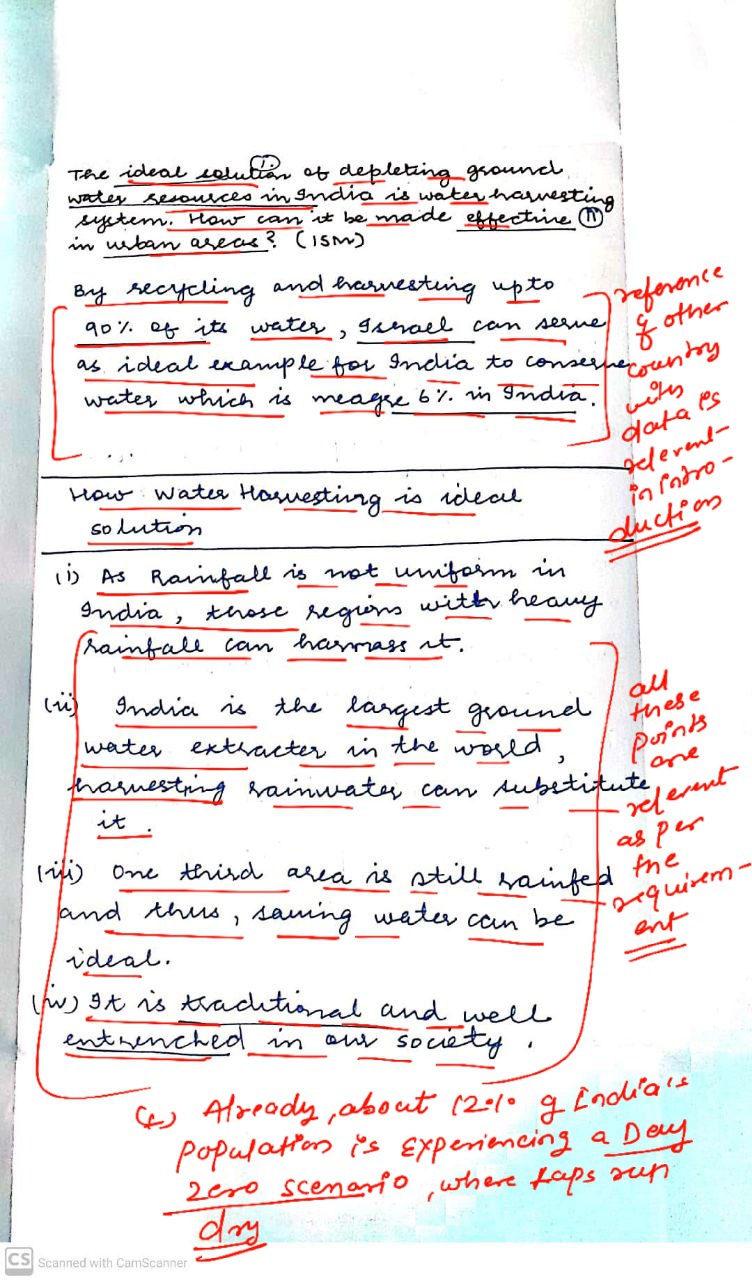 The ideal solution of depleting ground
(i)
water resources in India is water harvesting
system. How can it be made effective (ii)
in urban areas? (15M)
By recycling and harvesting upto
90% of its water, Israel can serve
as ideal example for India to conserve
water which is meagre 6% in India.
...
reference
of other
country
with
data is
relevent
in intro-
duction
How Water Harvesting is ideal
solution
(i) As Rainfall is not uniform in
India, those regions with heavy
rainfall can harnass it.
(ii) India is the largest ground
water extracter in the world,
harvesting rainwater can substitute
it.
(iii) One third area is still rainfed
and thus, saving water can be
ideal.
(iv) It is traditional and well
entrenched in our society.
all
these
points
are
relevent
as per
the
requirem-
ent
Already, about 12% of India's
population is experiencing a Day
zero scenario, where taps run
dry
CS Scanned with CamScanner